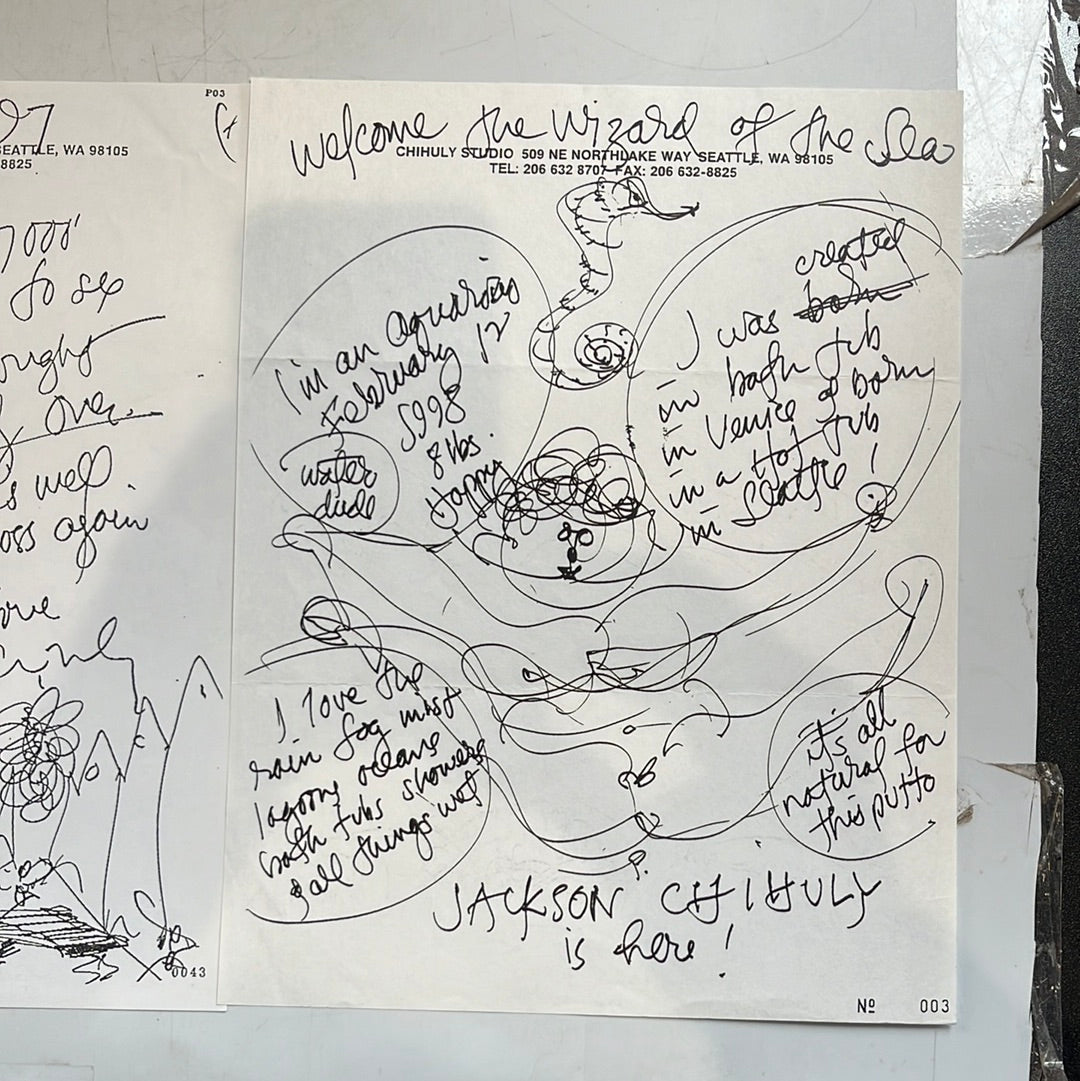 P03
97
SEATTLE, WA 98105
8825
7000'
to see
over.
well
again
0043
Welcome the Wizard of the Sea
CHIHULY STUDIO 509 NE NORTHLAKE WAY SEATTLE, WA 98105
TEL: 206 632 8707 FAX: 206 632-8825
I'm an aquarius
February 12
5998
8 lbs.
Happy
water
dude
created
I was born
in bath tub
in Venice & born
in a Hot tub
in Seattle!
I love the
rain fog mist
lagoons oceans
bath tubs showers
& all things wet
it's all
natural for
this putto
JACKSON CHIHULY
is here!
Nº 003